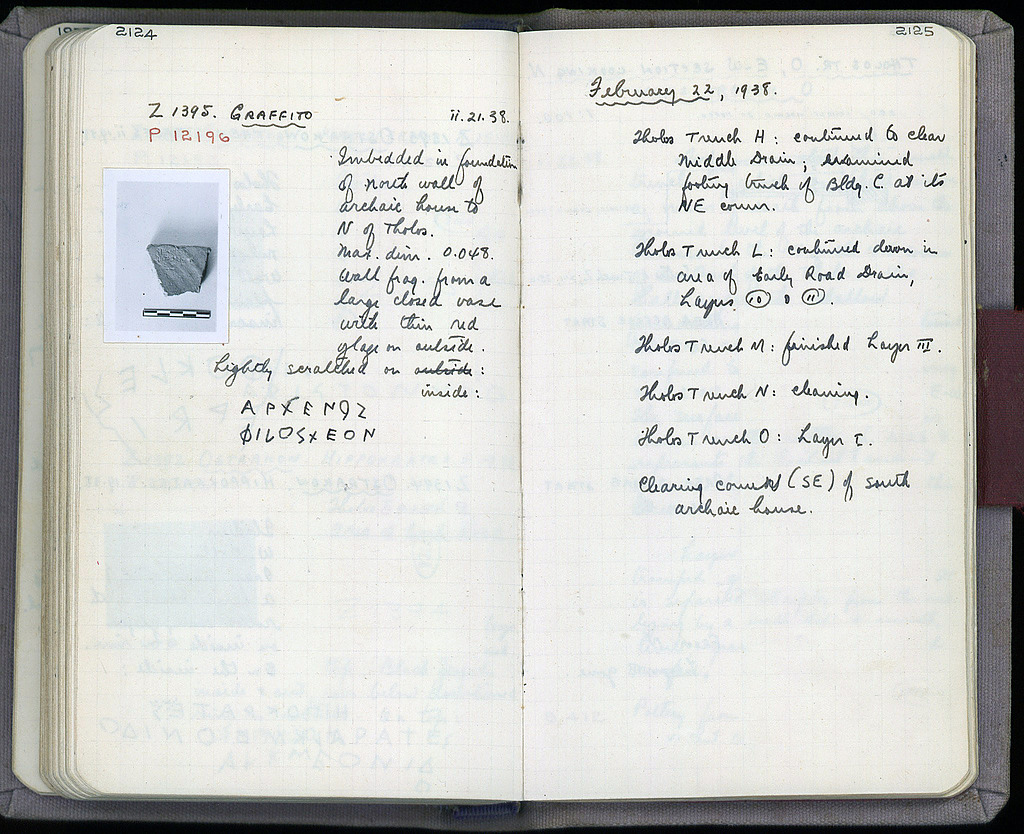 2124
Z 1395. GRAFFITO ii.21.38.
P 12196
Imbedded in foundation
of north wall of
archaic house to
N of Tholos.
Max. dim. 0.048.
Wall frag. from a
large closed vase
with thin red
glaze on outside.
Lightly scratched on outside:
inside:
2125
February 22, 1938.
Tholos Trench H: continued to clear
Middle Drain; examined
footing trench of Bldg. C. at its
NE corner.
Tholos Trench L: continued down in
area of Early Road Drain,
Layers 10 & 11.
Tholos Trench M: finished Layer III.
Tholos Trench N: cleaning.
Tholos Trench O: Layer I.
Clearing (SE) of south
archaic house.